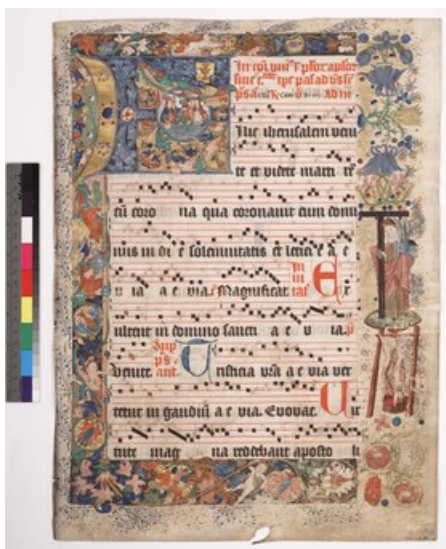 In
siue
Filie iherusalem veni
te et videte marti re
cū coro na qua coronauit eum domi
nus in di e solemnitatis et leticie a e
u ia a e via. Magnificat. In
ui
tat E x
ultent in domino sancti a e v ia. p̄
venite. Sup
ps
ant. T risticia vr̄a a e via ver
tetur in gaudiū a e via. Evovae. V ir
tute mag na reddebant aposto li